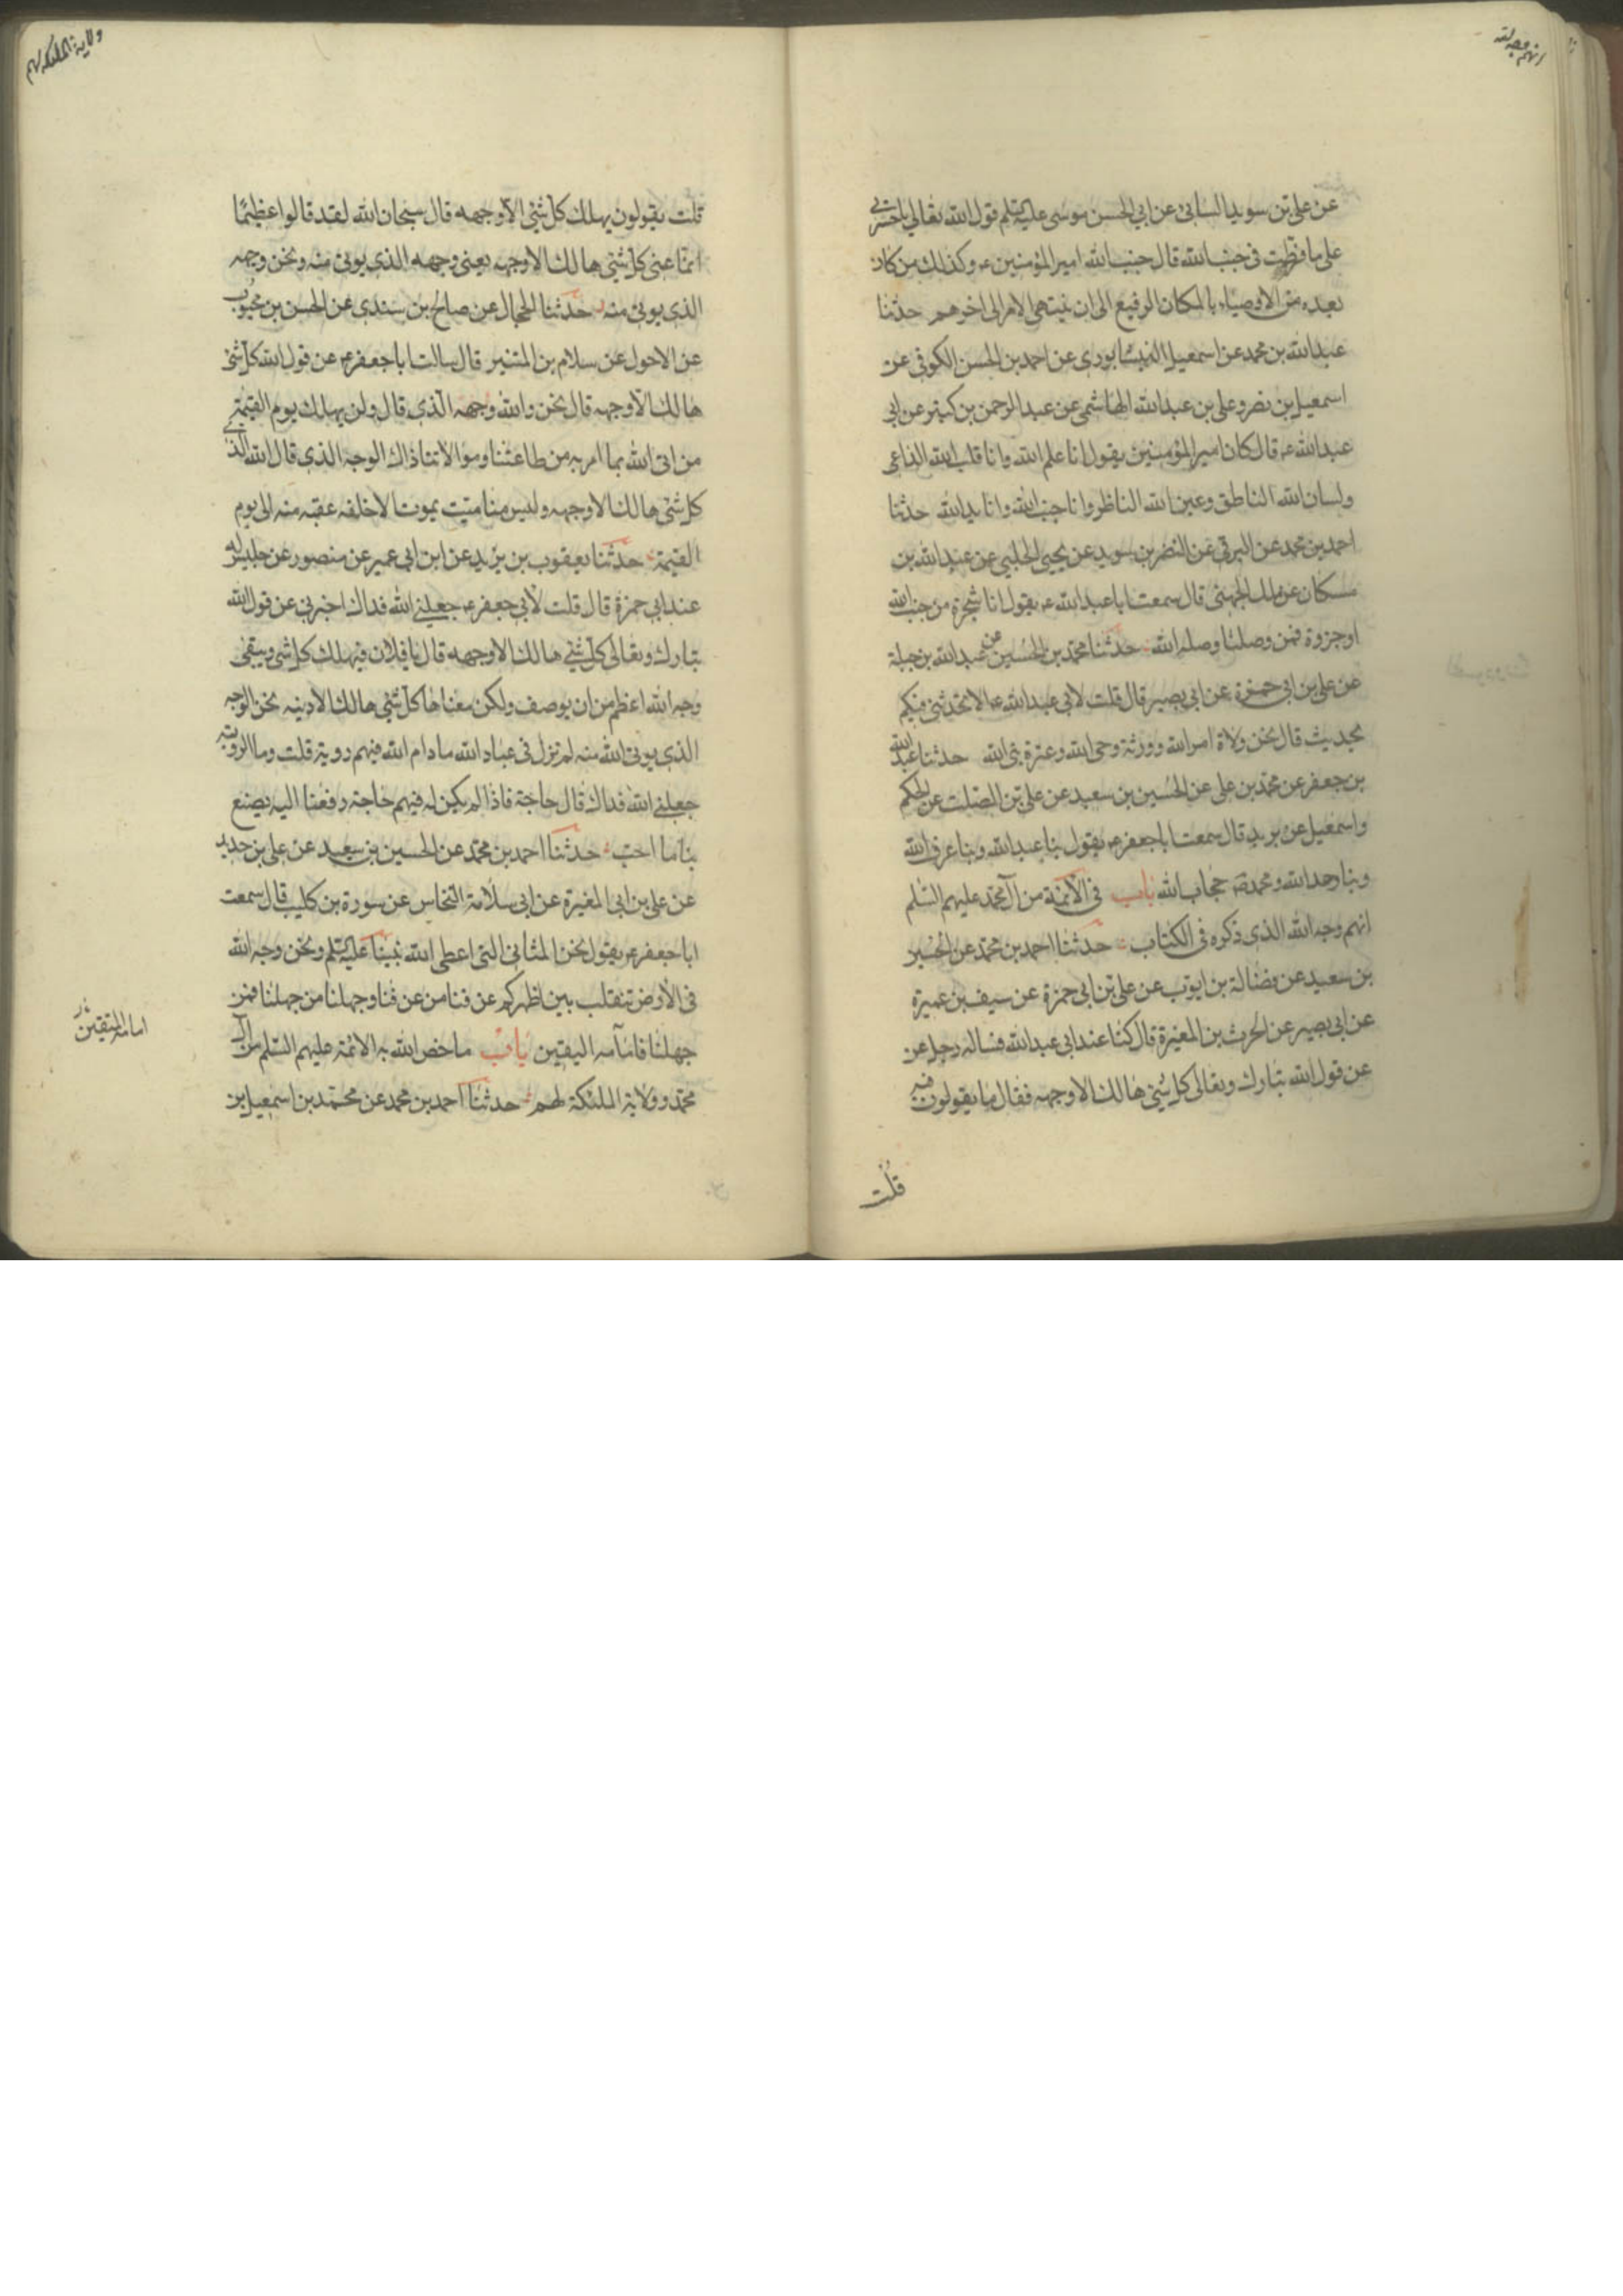 انهم وجه الله
عن علی بن سوید السابی عن ابی الحسن موسی علیه السلم قول الله تعالی یا حسرتی
علی ما فرطت فی جنب الله قال جنب الله امیر المؤمنین ع و کذلک من کان
بعده من الاوصیاء بالمکان الرفیع الی ان ینتهی الامر الی اخرهم حدثنا
عبدالله بن محمد عن اسمعیل النیشابوری عن احمد بن الحسن الکوفی عن
اسمعیل بن نصر و علی بن عبدالله الهاشمی عن عبدالرحمن بن کثیر عن ابی
عبدالله ع قال کان امیر المؤمنین یقول انا علم الله و انا قلب الله الداعی
ولسان الله الناطق وعین الله الناظر وانا جنب الله وانا ید الله حدثنا
احمد بن محمد عن البرقی عن النضر بن سوید عن یحیی الحلبی عن عبدالله بن
مسکان عن ملک الجهنی قال سمعت ابا عبدالله ع یقول انا شجرة من جنب الله
او جزوة فمن وصلنا وصله الله حدثنا محمد بن الحسین عن عبدالله بن جبلة
عن علی بن ابی حمزة عن ابی بصیر قال قلت لابی عبدالله ع الا تحدثنی فیکم
بحدیث قال نحن ولاة امر الله وورثة وحی الله وعترة نبی الله حدثنا عبدالله
بن جعفر عن محمد بن علی عن الحسین بن سعید عن علی بن الصلت عن الحکم
واسمعیل عن برید قال سمعت ابا جعفر ع یقول بنا عبدالله وبنا عرف الله
وبنا وحد الله ومحمد ص حجاب الله باب فی الائمة من آل محمد علیهم السلم
انهم وجه الله الذی ذکره فی الکتاب حدثنا احمد بن محمد عن الحسین
بن سعید عن فضالة بن ایوب عن علی بن ابی حمزة عن سیف بن عمیرة
عن ابی بصیر عن الحرث بن المغیرة قال کنا عند ابی عبدالله فساله رجل عن
عن قول الله تبارک وتعالی کل شئ هالک الا وجهه فقال ما یقولون فیه
قلت
ولایة الملئکه لهم
قلت یقولون یهلک کل شئ الا وجهه قال سبحان الله لقد قالوا عظیما
انما عنی کل شئ هالک الا وجهه یعنی وجهه الذی یوتی منه ونحن وجهه
الذی یوتی منه حدثنا الحجال عن صالح بن سندی عن الحسن بن محبوب
عن الاحول عن سلام بن المستنیر قال سالت ابا جعفر ع عن قول الله کل شئ
هالک الا وجهه قال نحن والله وجهه الذی قال ولن یهلک یوم القیمة
من اتی الله بما امر به من طاعتنا وموالاتنا ذاک الوجه الذی قال الله الذی
کل شئ هالک الا وجهه ولیس منا میت یموت الا خلفه عقبه منه الی یوم
القیمة حدثنا یعقوب بن یزید عن ابن ابی عمیر عن منصور عن جلیس له
عند ابی حمزة قال قلت لابی جعفر ع جعلنی الله فداک اخبرنی عن قول الله
تبارک وتعالی کل شئ هالک الا وجهه قال یا فلان فیهلک کل شئ ویبقی
وجه الله اعظم من ان یوصف ولکن معناها کل شئ هالک الا دینه نحن الوجه
الذی یوتی الله منه لم نزل فی عباد الله مادام الله فیهم رویة قلت وما الرویة
جعلنی الله فداک قال حاجة فاذا لم یکن له فیهم حاجة رفعنا الیه یصنع
بنا ما احب حدثنا احمد بن محمد عن الحسین بن سعید عن علی بن حدید
عن علی بن ابی المغیرة عن ابی سلامة النخاس عن سورة بن کلیب قال سمعت
ابا جعفر ع یقول نحن المثانی التی اعطی الله نبینا علیه السلم ونحن وجه الله
فی الارض نتقلب بین اظهرکم عرفنا من عرفنا وجهلنا من جهلنا فمن
جهلنا فامامه الیقین باب ما خص الله به الائمة علیهم السلم من آل
محمد وولایة الملئکة لهم حدثنا احمد بن محمد عن محمد بن اسمعیل بن
امامه المتقین